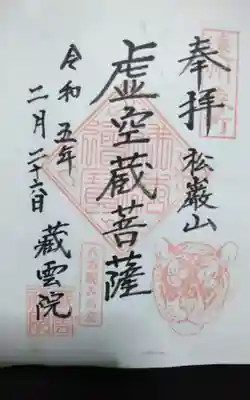 奉拝
松巌山
虚空蔵菩薩
令和五年
二月二十六日
蔵雲院